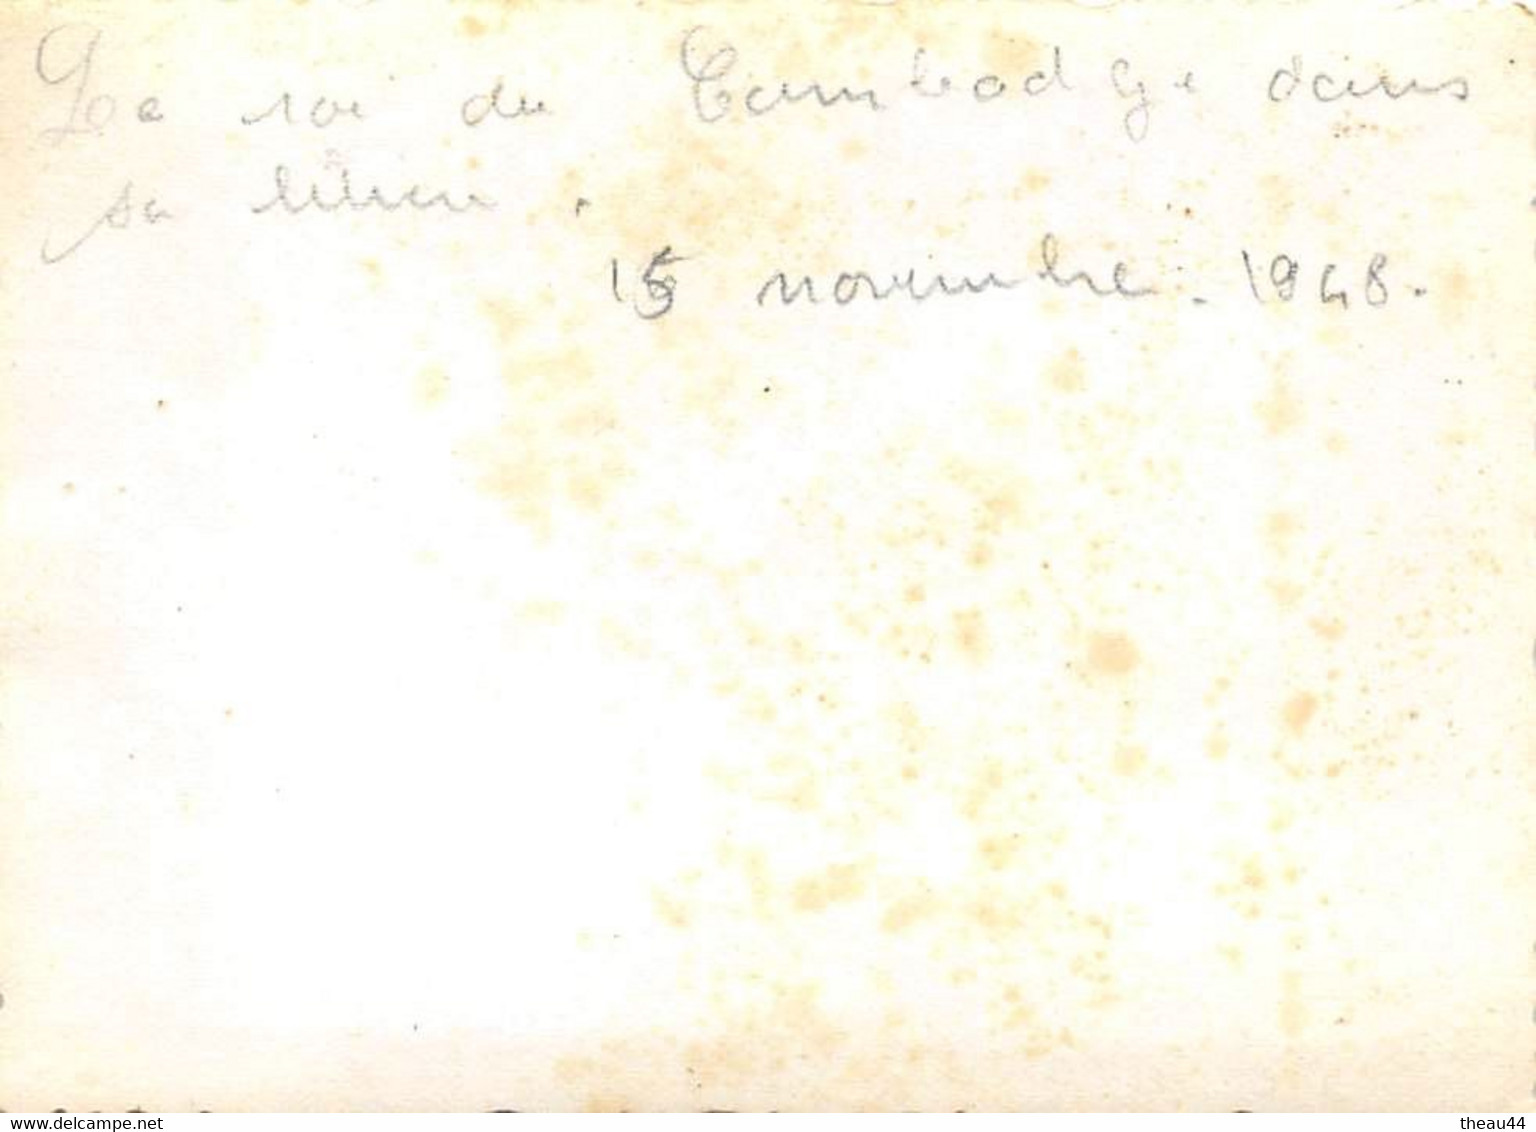 Le roi du Cambodge dans
sa
15 novembre. 1948.
delcampe.net
theau44